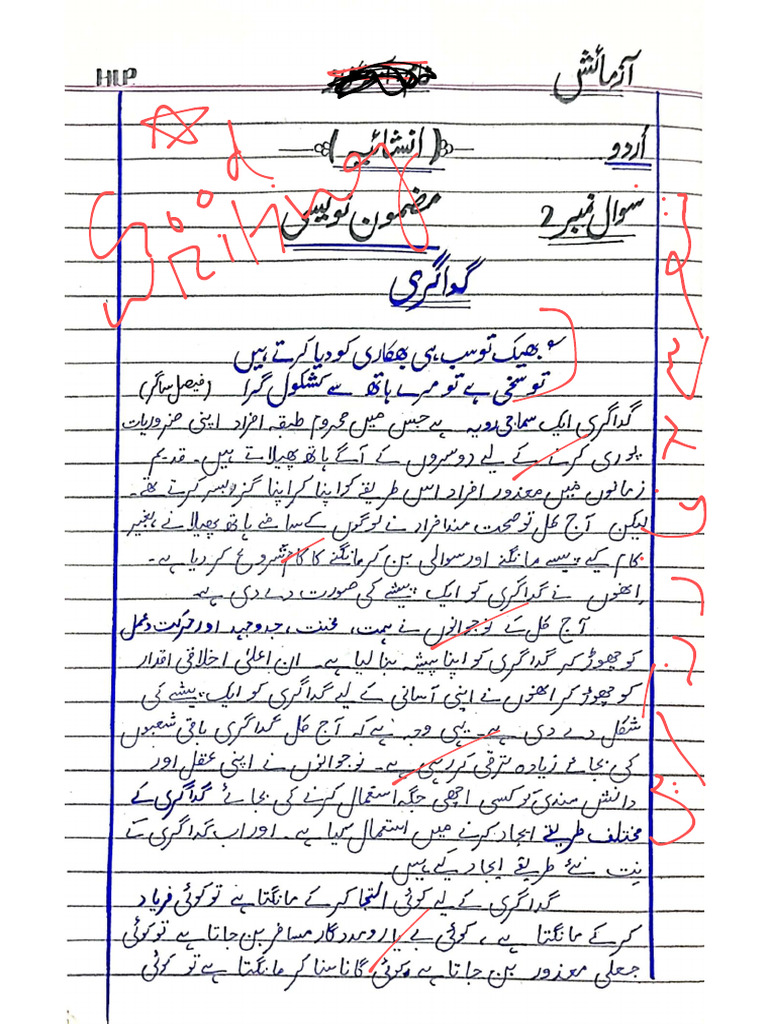 HLP آزمائش
اُردو (انشائیہ)
سوال نمبر 2 مضمون نویسی
Good
گداگری
؎ بھیک تو سب ہی بھکاری کو دیا کرتے ہیں
تو سخی ہے تو مرے ہاتھ سے کشکول گرا (فیصل ساگر)
گداگری ایک سماجی رویہ ہے جس میں محروم طبقہ افراد اپنی ضروریات
پوری کرنے کے لیے دوسروں کے آگے ہاتھ پھیلاتے ہیں۔ قدیم
زمانوں میں معذور افراد اس طریقے کو اپنا کر اپنا گزر بسر کرتے تھے۔
لیکن آج کل تو صحت مند افراد نے لوگوں کے سامنے ہاتھ پھیلانے، بغیر
کام کیے پیسے مانگنے اور سوالی بن کر مانگنے کا کام شروع کر دیا ہے۔
اِنھوں نے گداگری کو ایک پیشے کی صورت دے دی ہے۔
آج کل کے نوجوانوں نے ہمت، محنت، جدوجہد اور حرکت و عمل
کو چھوڑ کر گداگری کو اپنا پیشہ بنا لیا ہے۔ ان اعلیٰ اخلاقی اقدار
کو چھوڑ کر انھوں نے اپنی آسانی کے لیے گداگری کو ایک پیشے کی
شکل دے دی ہے۔ یہی وجہ ہے کہ آج کل گداگری باقی شعبوں
کی بجائے زیادہ ترقی کر رہی ہے۔ نوجوانوں نے اپنی عقل اور
دانش مندی کو کسی اچھی جگہ استعمال کرنے کی بجائے گداگری کے
مختلف طریقے ایجاد کرنے میں استعمال کیا ہے۔ اور اب گداگری کے
نِت نئے طریقے ایجاد کیے ہیں
گداگری کے لیے کوئی التجا کر کے مانگتا ہے تو کوئی فریاد
کر کے مانگتا ہے، کوئی بے یار و مددگار مسافر بن جاتا ہے تو کوئی
جعلی معذور بن جاتا ہے، کوئی گانا سنا کر مانگتا ہے تو کوئی